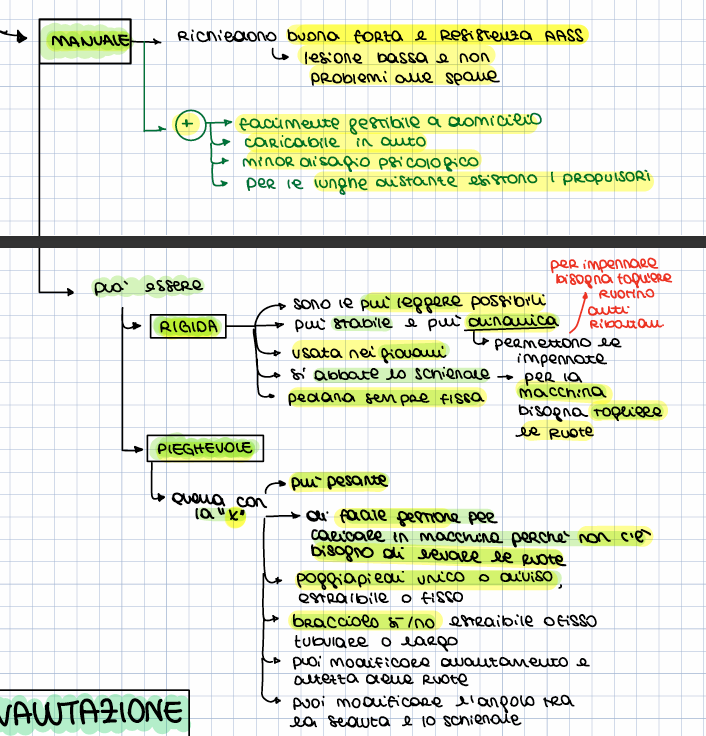 MANUALE
RICHIEDONO buona forza e RESISTENZA AASS
lesione bassa e non
problemi alle spalle
+
facilmente gestibile a domicilio
caricabile in auto
minor disagio psicologico
per le lunghe distanze esistono i propulsori
può essere
RIGIDA
sono le più leggere possibili
più stabile e più dinamica
permettono le
impennate
per impennare
bisogna togliere
ruotino
anti
ribaltam
usata nei giovani
si abbatte lo schienale
per la
macchina
bisogna togliere
le ruote
pedana sempre fissa
PIEGHEVOLE
quella con
la "K"
più pesante
di facile gestione per
caricare in macchina perchè non c'è
bisogno di levare le ruote
poggiapiedi unico o diviso,
estraibile o fisso
bracciolo sì/no estraibile o fisso
tubulare o largo
puoi modificare avanzamento e
altezza delle ruote
puoi modificare l'angolo tra
la seduta e lo schienale
VALUTAZIONE